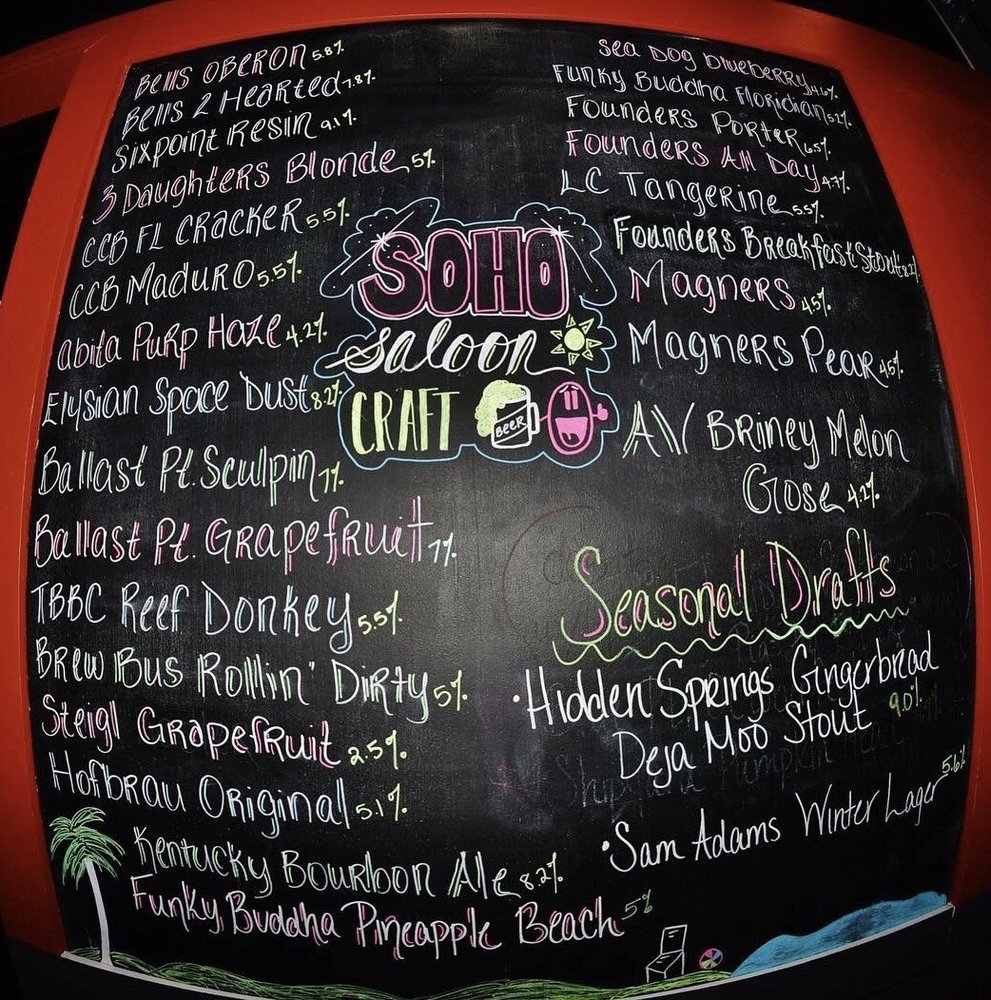 Bells Oberon 5.8%
Bells 2 Hearted 7.8%
Sixpoint Resin 9.1%
3 Daughters Blonde 5%
CCB FL Cracker 5.5%
CCB Maduro 5.5%
Abita Purp Haze 4.2%
Elysian Space Dust 8.2%
Ballast Pt. Sculpin 7%
Ballast Pt. Grapefruit 7%
TBBC Reef Donkey 5.5%
Brew Bus Rollin' Dirty 5%
Steigl Grapefruit 2.5%
Hofbrau Original 5.1%
Kentucky Bourbon Ale 8.2%
Funky Buddha Pineapple Beach 5%
SOHO
Saloon
CRAFT
BEER
Sea Dog Blueberry 4.6%
Funky Buddha Floridian 5.2%
Founders Porter 6.5%
Founders All Day 4.7%
LC Tangerine 5.5%
Founders Breakfast Stout 8.2%
Magners 4.5%
Magners Pear 4.5%
AV Briney Melon
Gose 4.2%
Seasonal Drafts
•Hidden Springs Gingerbread
Deja Moo Stout 9.0%
•Sam Adams Winter Lager 5.6%